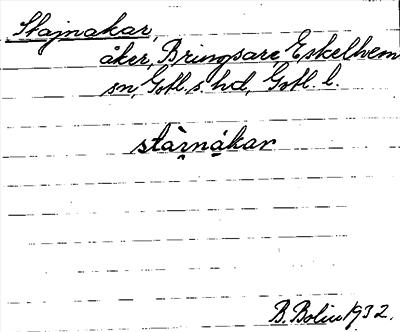 Stajnakar,
åker, Bringsare, Eskelhem
sn, Gotl. s. hd, Gotl. l.
stàrnákar
B. Bolin 1932.